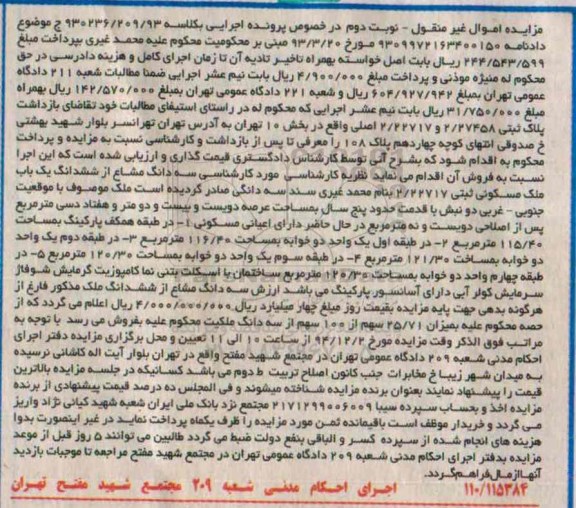 مزایده اموال غیر منقول - نوبت دوم در خصوص پرونده اجرایی بکلاسه ۹۳۰۲۳۶/۲۰۹/۹۳ ج موضوع
دادنامه ۹۳۰۹۹۷۲۱۶۳۴۰۰۱۵۰ مورخ ۹۳/۳/۲۰ مبنی بر محکومیت محکوم علیه محمد غیری بپرداخت مبلغ
۲۴۴/۵۴۳/۵۹۹ ریال بابت اصل خواسته بهمراه تاخیر تادیه آن تا زمان اجرای کامل و هزینه دادرسی در حق
محکوم له منیژه موذنی و پرداخت مبلغ ۴/۹۰۰/۰۰۰ ریال بابت نیم عشر اجرایی ضمنا مطالبات شعبه ۲۱۱ دادگاه
عمومی تهران بمبلغ ۶۰۴/۹۲۷/۹۴۲ ریال و شعبه ۲۲۱ دادگاه عمومی تهران بمبلغ ۱۴۲/۵۷۰/۰۰۰ ریال بهمراه
مبلغ ۳۱/۷۵۰/۰۰۰ ریال بابت نیم عشر اجرایی که محکوم له در راستای استیفای مطالبات خود تقاضای بازداشت
پلاک ثبتی ۲/۲۷۴۵۸ و ۲/۲۲۷۱۷ اصلی واقع در بخش ۱۰ تهران به آدرس تهران تهرانسر بلوار شهید بهشتی
خ صدوقی انتهای کوچه چهاردهم پلاک ۱۰۸ را معرفی تا پس از بازداشت و کارشناسی نسبت به مزایده و پرداخت
محکوم به اقدام شود که بشرح آتی توسط کارشناس دادگستری قیمت گذاری و ارزیابی شده است که این اجرا
نسبت به فروش آن اقدام می نماید نظریه کارشناسی مورد کارشناسی سه دانگ مشاع از ششدانگ یک باب
ملک مسکونی ثبتی ۲/۲۲۷۱۷ بنام محمد غیری سند سه دانگی صادر گردیده است ملک موصوف با موقعیت
جنوبی - غربی دو نبش با قدمت حدود پنج سال بمساحت عرصه دویست و بیست و دو متر و هفتاد دسی مترمربع
پس از اصلاحی دویست و نه مترمربع در حال حاضر دارای اعیانی مسکونی ۱- در طبقه همکف پارکینگ بمساحت
۱۱۵/۴۰ مترمربع ۲- در طبقه اول یک واحد دو خوابه بمساحت ۱۱۶/۴۰ مترمربع ۳- در طبقه دوم یک واحد
دو خوابه بمساحت ۱۲۱/۳۰ مترمربع ۴- در طبقه سوم یک واحد دو خوابه بمساحت ۱۲۰/۳۰ مترمربع ۵- در
طبقه چهارم واحد دو خوابه بمساحت ۱۲۰/۳۰ مترمربع ساختمان با اسکلت بتنی نما کامپوزیت گرمایش شوفاژ
سرمایش کولر آبی دارای آسانسور پارکینگ می باشد ارزش سه دانگ مشاع از ششدانگ ملک مذکور فارغ از
هرگونه بدهی جهت پایه مزایده بقیمت روز مبلغ چهار میلیارد ریال ۴/۰۰۰/۰۰۰/۰۰۰ ریال اعلام می گردد که از
حصه محکوم علیه بمیزان ۲۵/۷۱ سهم از ۱۰۰ سهم از سه دانگ ملکیت محکوم علیه بفروش می رسد با توجه به
مراتب فوق الذکر وقت مزایده مورخ ۹۴/۱۲/۲ از ساعت ۱۰ الی ۱۱ تعیین و محل برگزاری مزایده دفتر اجرای
احکام مدنی شعبه ۲۰۹ دادگاه عمومی تهران در مجتمع شهید مفتح واقع در تهران بلوار آیت اله کاشانی نرسیده
به میدان شهر زیبا خ مخابرات جنب کانون اصلاح تربیت ط دوم می باشد کسانیکه در جلسه مزایده بالاترین
قیمت را پیشنهاد نمایند بعنوان برنده مزایده شناخته میشوند و فی المجلس ده درصد قیمت پیشنهادی از برنده
مزایده اخذ و بحساب سپرده سیبا ۲۱۷۱۲۹۹۰۰۶۰۰۹ مجتمع نزد بانک ملی ایران شعبه شهید کیانی نژاد واریز
می گردد و خریدار موظف است باقیمانده ثمن مورد مزایده را ظرف یکماه پرداخت نماید در غیر اینصورت بدوا
هزینه های انجام شده از سپرده کسر و الباقی بنفع دولت ضبط می گردد طالبین می توانند ۵ روز قبل از موعد
مزایده بدفتر اجرای احکام مدنی شعبه ۲۰۹ دادگاه عمومی تهران در مجتمع شهید مفتح مراجعه تا موجبات بازدید
آنها از مال فراهم گردد.
۱۱۰/۱۱۵۳۸۴ اجرای احکام مدنی شعبه ۲۰۹ مجتمع شهید مفتح تهران